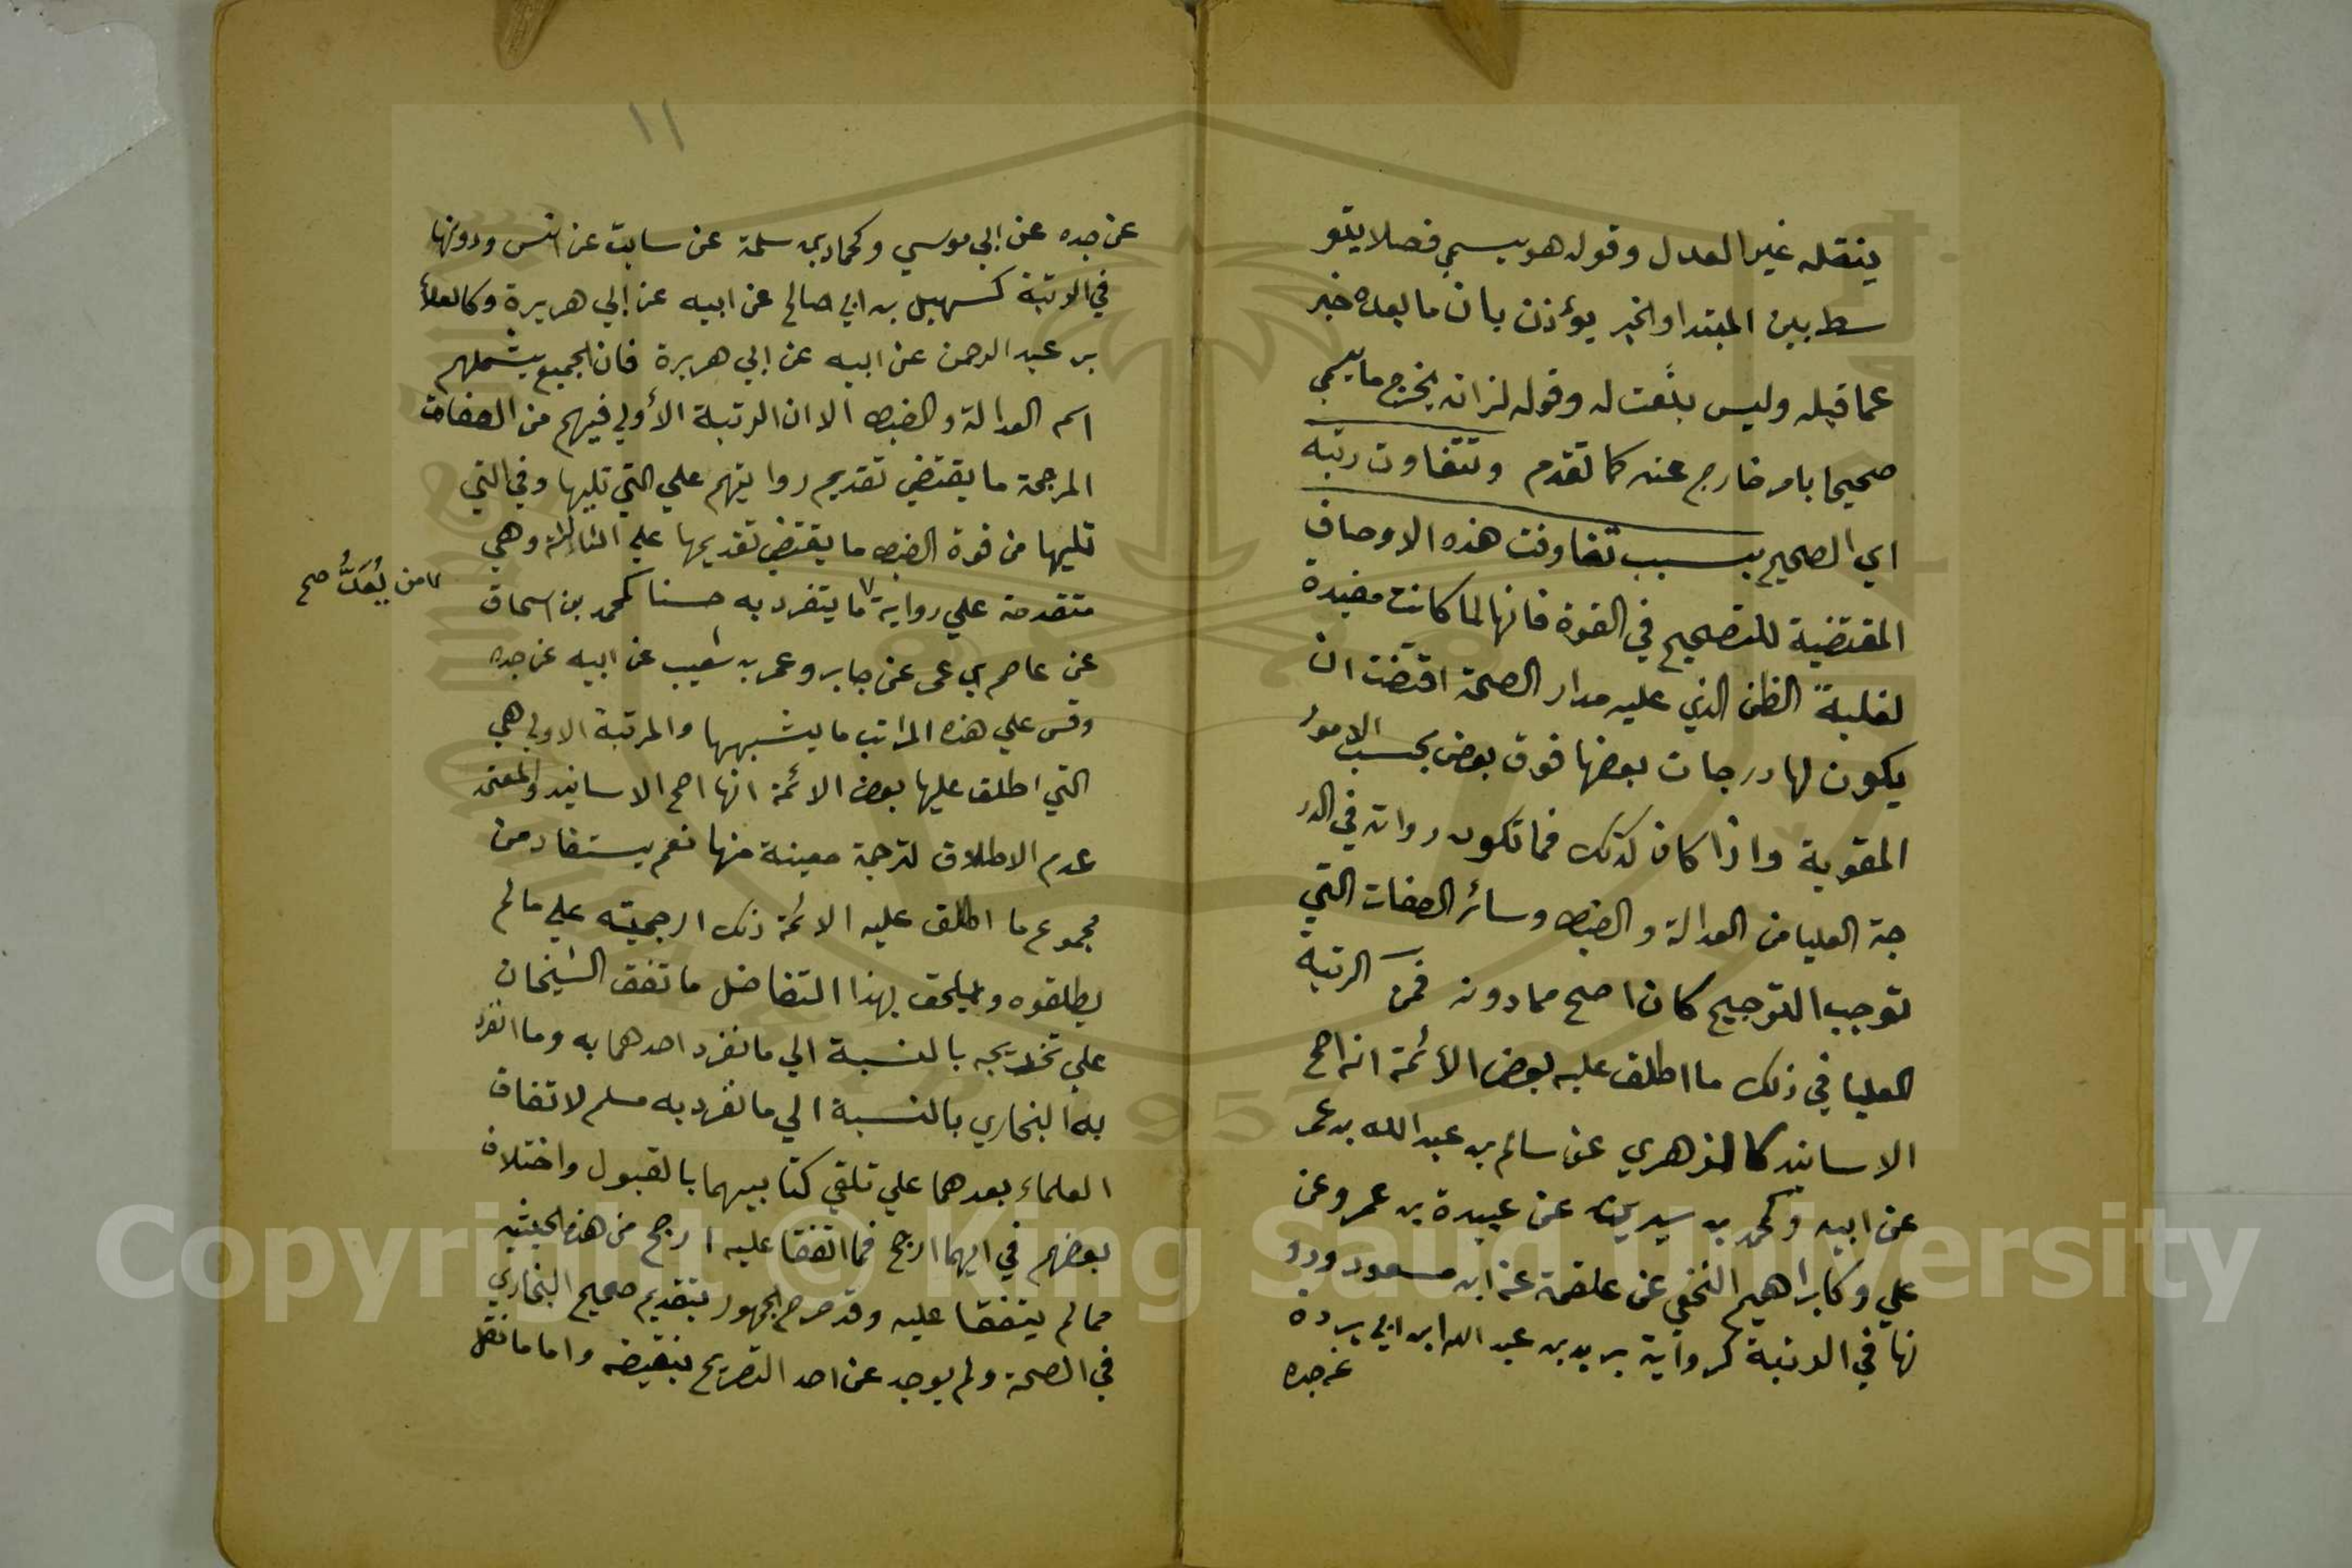 ينقله غير العدل وقوله هو يسمي فصلا يتو
سط بين المبتدا والخبر يؤذن بان ما بعده خبر
عما قبله وليس بنعت له وقوله لذاته يخرج ما يسمي
صحيحا بامر خارج عنه كما تقدم وتتفاوت رتبه
اي الصحيح بسبب تفاوت هذه الاوصاف
المقتضية للتصحيح في القوة فانها لما كانت مفيدة
لغلبة الظن الذي عليه مدار الصحة اقتضت ان
يكون لها درجات بعضها فوق بعض بحسب الامور
المقوية واذا كان كذلك فما تكون رواته في الدر
جة العليا من العدالة والضبط وسائر الصفات التي
توجب الترجيح كان اصح مما دونه فمن الرتبة
العليا في ذلك ما اطلق عليه بعض الائمة انه اصح
الاسانيد كالزهري عن سالم بن عبد الله بن عمر
عن ابيه وكمحمد بن سيرين عن عبيدة بن عمرو عن
علي وكابراهيم النخعي عن علقمة عن ابن مسعود ودو
نها في الرتبة كرواية بريد بن عبد الله ابن ابي بردة
عن جده
١١
عن جده عن ابي موسي وكحماد بن سلمة عن سابت عن انس ودونها
في الرتبة كسهيل بن ابي صالح عن ابيه عن ابي هريرة وكالعلاء
بن عبد الرحمن عن ابيه عن ابي هريرة فان الجميع يشملهم
اسم العدالة والضبط الا ان الرتبة الأولي فيهم من الصفات
المرجحة ما يقتضي تقديم روايتهم علي التي تليها وفي التي
تليها من قوة الضبط ما يقتضي تقديمها علي الثالثة وهي
متقدمة علي رواية ما يتفرد به حسنا كمحمد بن اسحاق
من يُعَدُّ صح
عن عاصم بن عمر عن جابر وعمر بن شعيب عن ابيه عن جده
وقس علي هذه المراتب ما يشبهها والمرتبة الاولي هي
التي اطلق عليها بعض الائمة انها اصح الاسانيد والمعتمد
عدم الاطلاق لترجمة معينة منها نعم يستفاد من
مجموع ما اطلق عليه الائمة ذلك ارجحيته علي ما لم
يطلقوه ويلحق بهذا التفاضل ما تفق الشيخان
علي تخريجه بالنسبة الي ما نفرد احدهما به وما انفرد
به البخاري بالنسبة الي ما نفرد به مسلم لاتفاق
العلماء بعدهما علي تلقي كتابيهما بالقبول واختلاف
بعضهم في ايهما ارجح فما اتفقا عليه ارجح من هذه الحيثيه
مما لم يتفقا عليه وقد صرح الجمهور بتقديم صحيح البخاري
في الصحة ولم يوجد عن احد التصريح بنقيضه واما ما نقل
Copyright © King Saud University